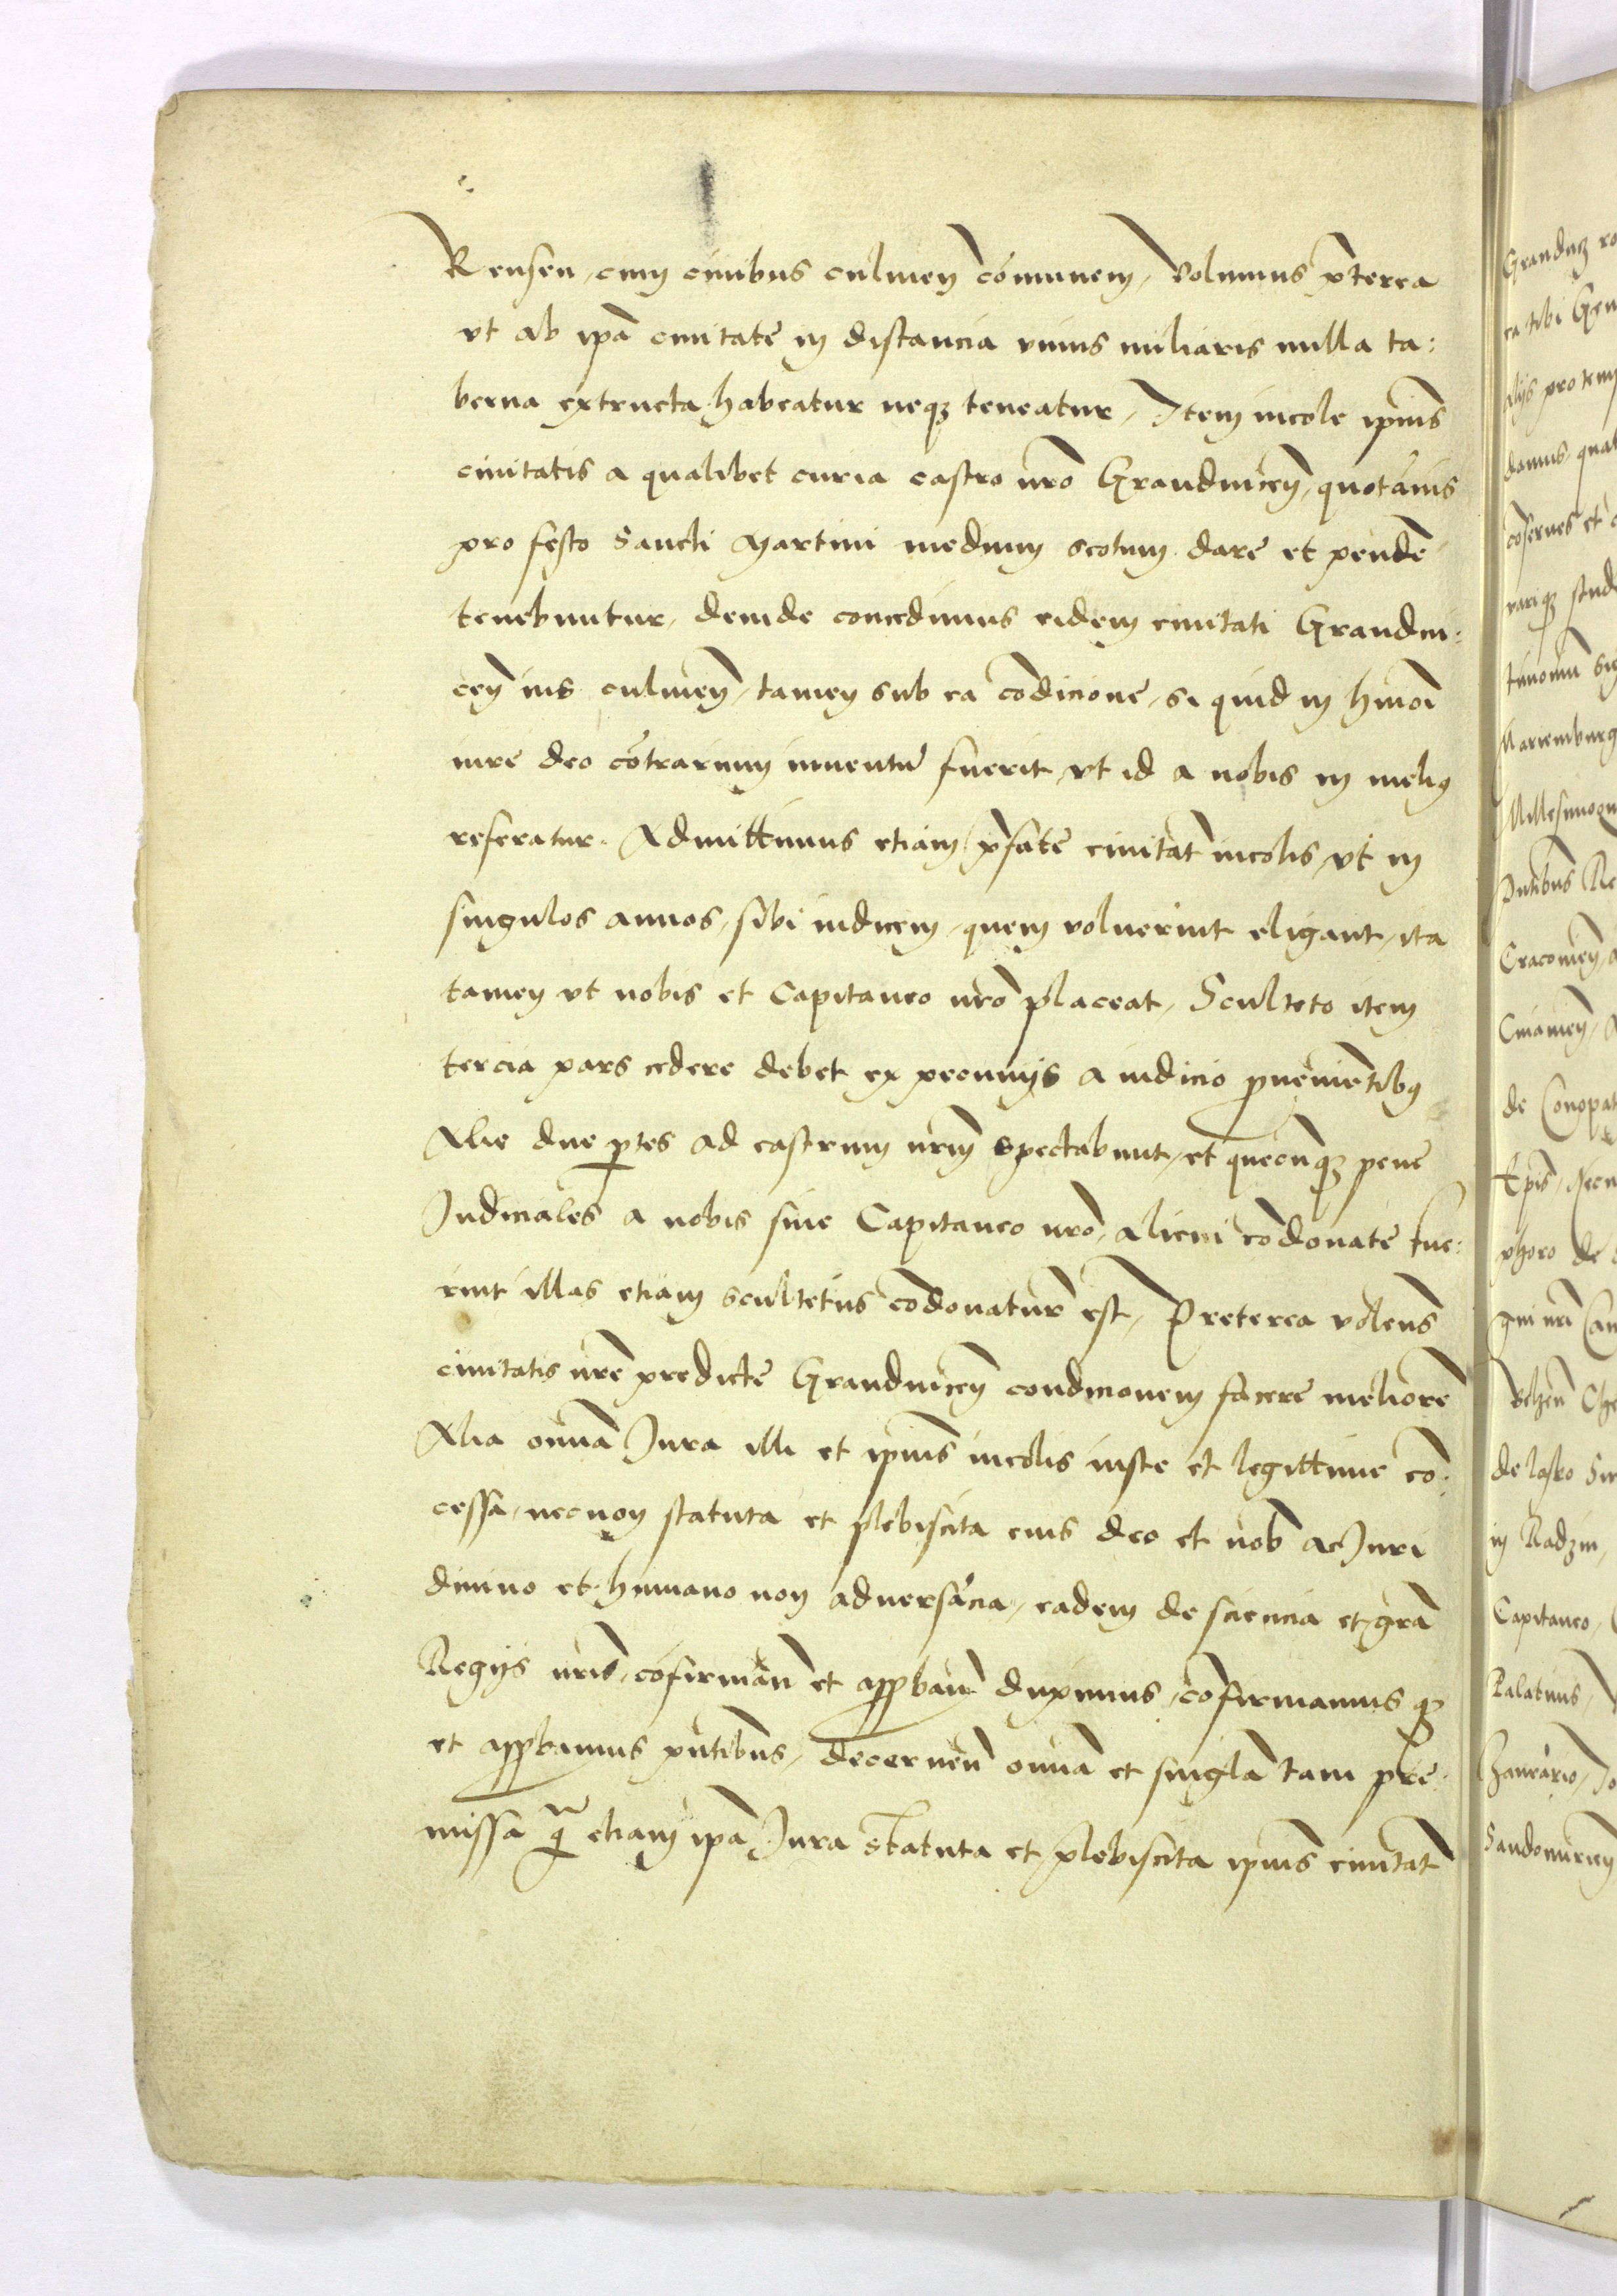 Rensen, cum ciuibus culmeñ cōmunem, Volumus p̄terea
vt ab ip̄a ciuitate in distancia vnius miliaris nulla ta:
berna extructa habeatur neqꝫ teneatur, Item incole ip̄ius
ciuitatis a qualibet curia castro nr̄o Graudniceñ, quotānis
pro festo Sancti Martini medium scotum dare et pende
tenebuntur, deinde concedimus eidem ciuitati Graudni:
ceñ ius culmeñ, tamen sub ea cōdicione, si quid in hm̄oi
iure deo cōtrarium inuentū fuerit, vt id a nobis in meliꝰ
referatur. Admittimus etiam p̄fate ciuitat̄ incolis, vt in
singulos annos, sibi iudicem, quem voluerint eligant, ita
tamen vt nobis et Capitaneo nr̄o placeat, Sculteto item
tercia pars cedere debet ex pecunijs a iudicio ꝓuenientibꝰ
Alie due ꝑtes ad castrum nr̄m spectabunt, et quecūqꝫ pene
Iudiciales a nobis siue Capitaneo nr̄o, alicui cōdonate fue:
rint illas etiam scultetus cōdonaturꝰ est, Preterea volens
ciuitatis nr̄e predicte Graudniceñ condicionem facere meliorē
Alia om̄ia Iura illi et ip̄ius incolis iuste et legittime cō:
cessa, necnon statuta et plebiscita eius deo et nob̄ ac Juri
diuino et humano non aduersācia, eadem de sciencia et gr̄a
Regijs nr̄is, cōfirmañ et apꝓbañ duximus, cōfirmamusqꝫ
et apꝓbamus pn̄tibus, decerneñ om̄ia et singl̄a tam pre:
missa q̄ etiam ip̄a Jura Statuta et plebiscita ip̄ius ciuitat̄
Graudncꝫ ro
ra tibi Gen
alijs pro tem
damus quat
cōserues et
rariqꝫ stude
timoniū sig
Mariemburg
Millesimoqu
Pn̄tibus Re
Cracouieñ, a
Cuiauieñ, A
de Conopat
Ep̄is, Necn
phoro de
gni nr̄i Can
Belzeñ Che
de lasko Sir
in Radzin,
Capitaneo,
Palatinus,
Zancario, Jo
Sandomirieñ